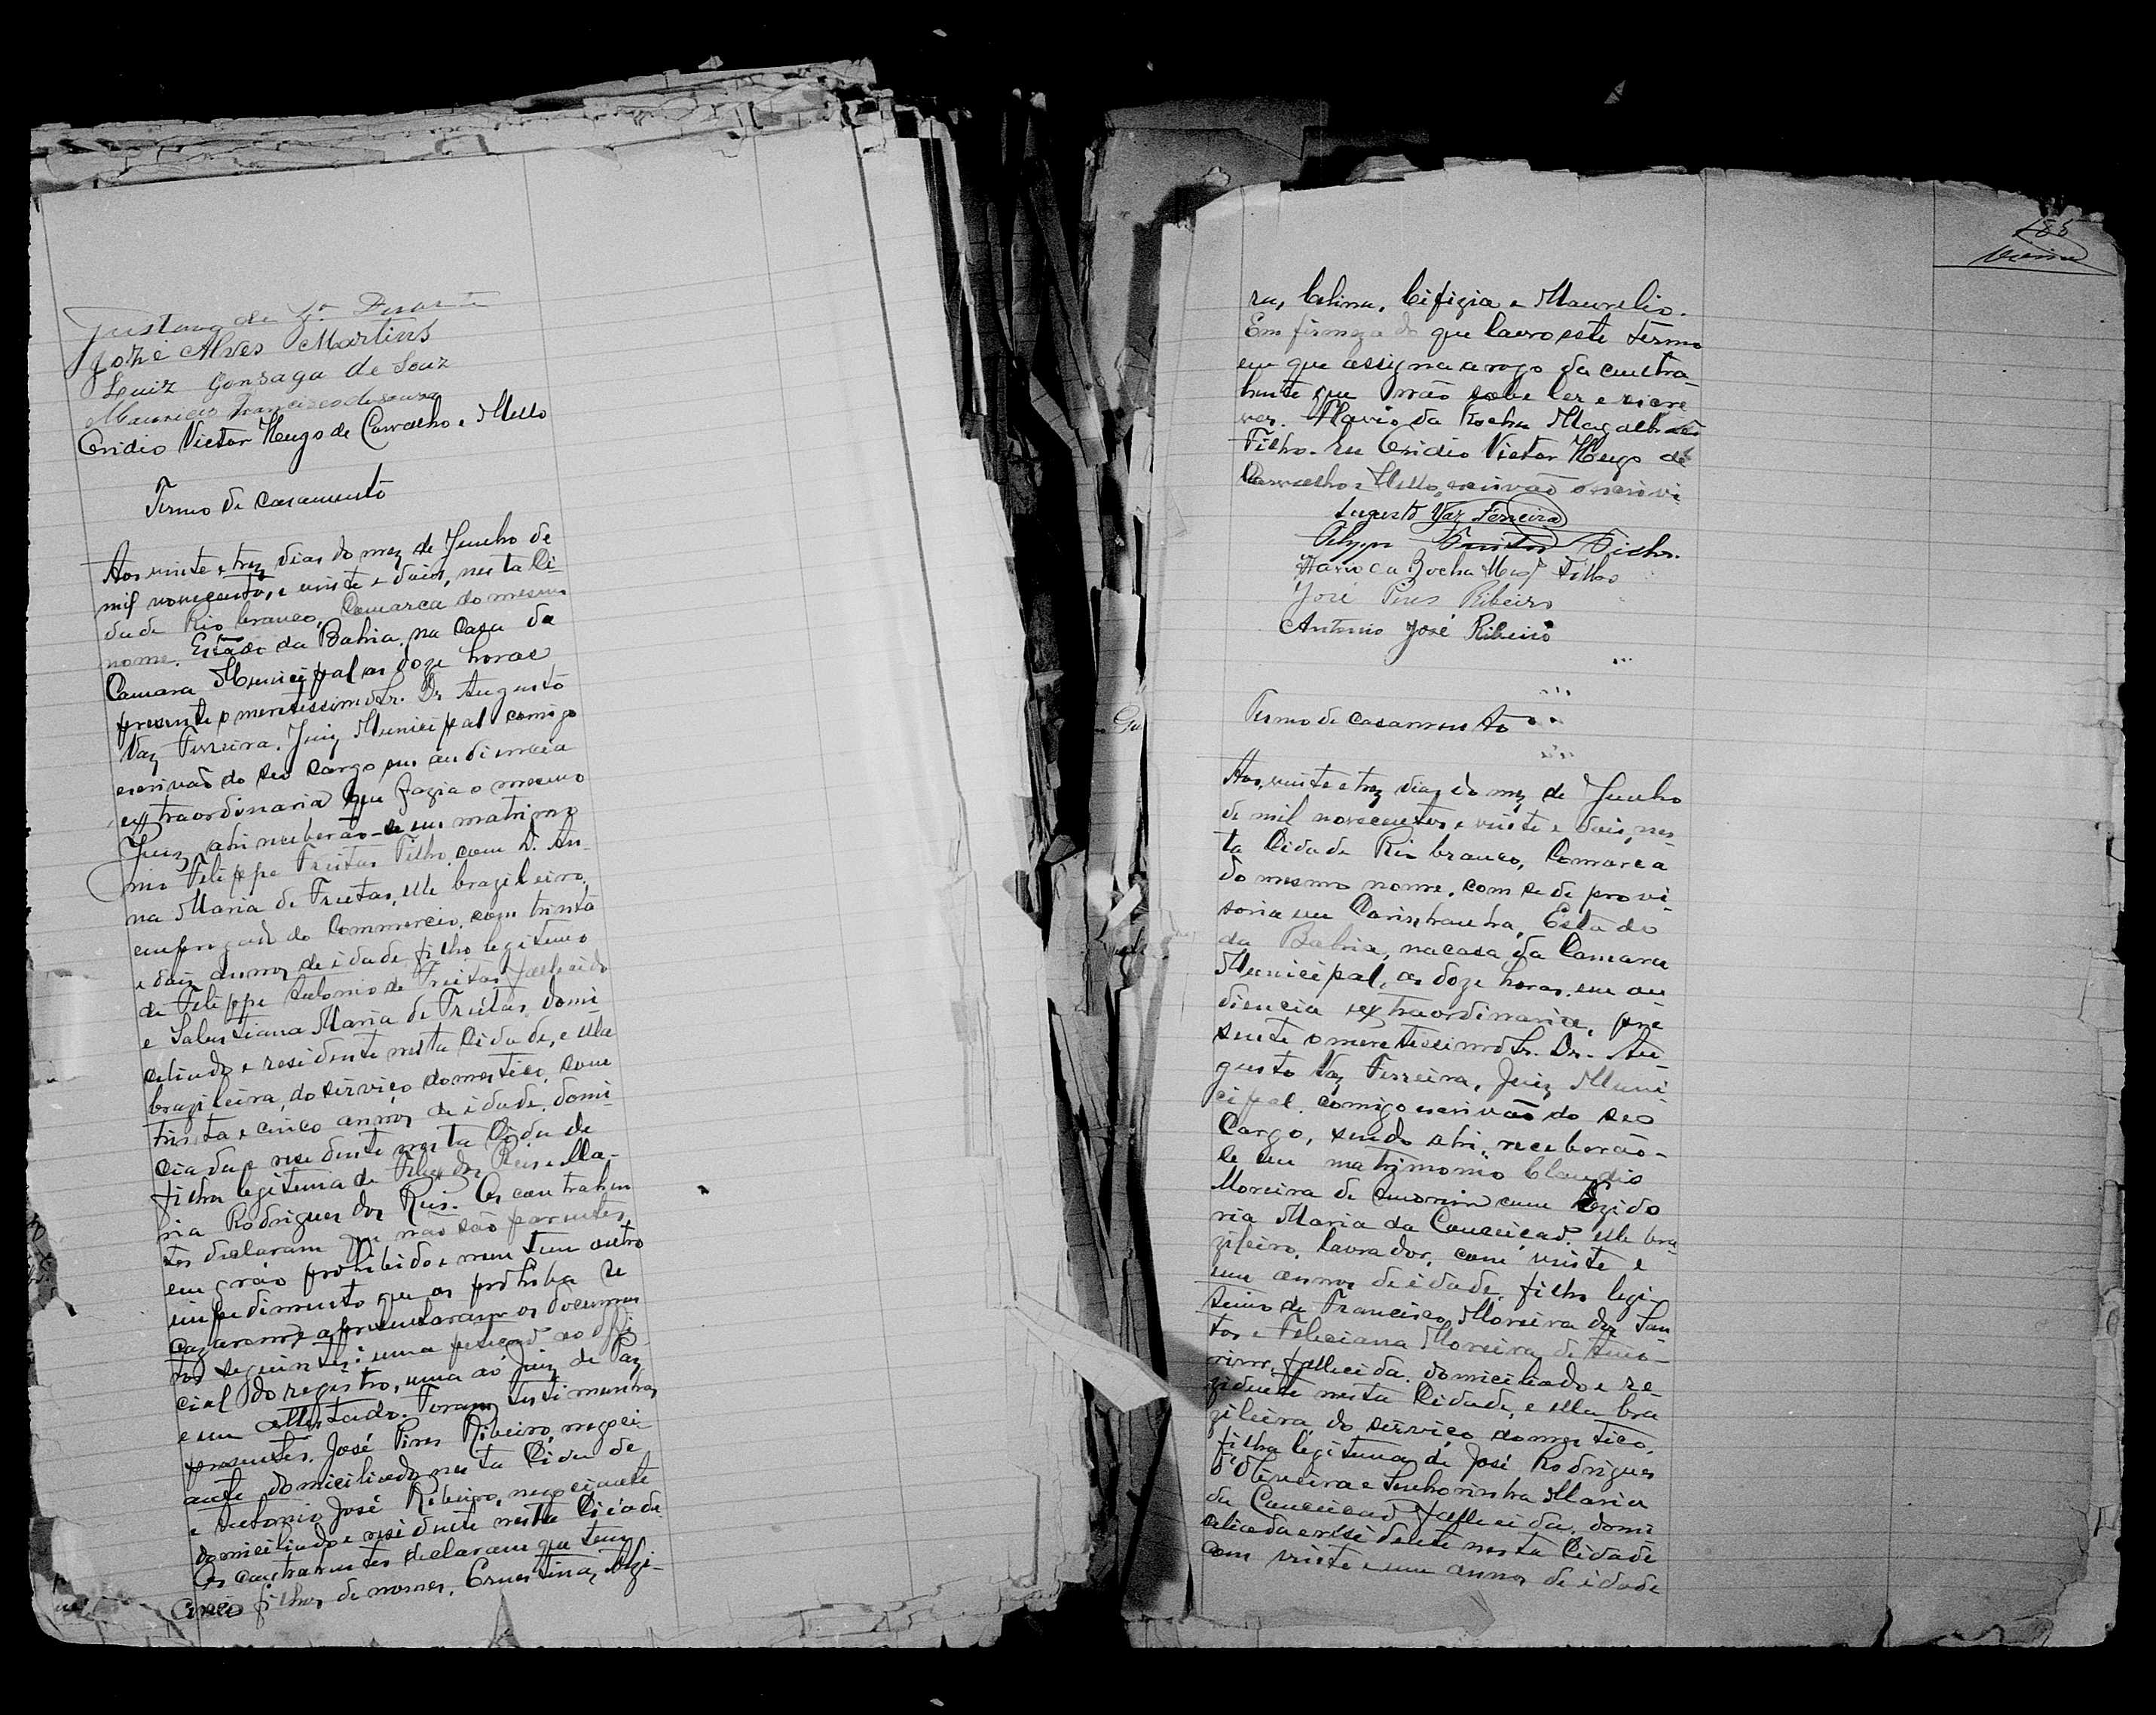 Gustavo de
José Alves Martins
Luiz Gonsaga de Souz
Mauricio Francisco de Souza
Ceridio Victor Hugo de Carvalho e Mello
Termo de casamento
Aos vinte e trez dias do mez de Junho de
mil novecentos e vinte e dois, nesta Ci-
dade Rio branco, Comarca do mesmo
nome, Estado da Bahia, na Casa da
Camara Municipal as doze horas
presente o meretissimo Sr. Dr Augusto
Vaz Ferreira, Juiz Municipal comigo
escrivaõ do seo cargo em audiencia
extraordinaria que fazia o mesmo
Juiz, ahi receberaõ-se em matrimo
nio Felippe Freitas Filho, com D. An-
na Maria de Freitas, elle brazileiro,
empregado do Commercio, com trinta
e dois annos de idade filho legitimo
de Felippe Antonio de Freitas, fallecido
e Salustiana Maria de Freitas, domi
ciliado e residente nesta Cidade, e ella
brazileira, do serviço domestico, com
trinta e cinco annos de idade, domi-
ciada e residente nesta Cidade
filha legitima de dos Reis e Ma-
ria Rodrigues dos Reis. Os contrahen
tes declaram que naõ são parentes
em gráo prohibido e nem tem outro
impedimento que os prohiba se
cazarem e apresentaram os documen
tos seguintes: uma petiçaõ ao offi-
cial do registro, uma ao Juiz de Paz
e um attestado. Foram testimunhas
presentes, José Pires Ribeiro, negoci
ante domiciliado nesta Cidade
e Antonio José Ribeiro, negociante
domiciliado e residente nesta Cidade
Os contrahentes declaram que tem
cinco filhos de nomes, Ernestina,
185
ra, Celina, e Maurelio.
Em firmeza do que lavro este termo
em que assigna a rogo da contra-
hente que não sabe ler e escre
ver. Flavio da Rocha Magalhães
Filho. Eu Ceridio Victor Hugo de
Carvalho e Mello, escrivaõ o escrevi
Augusto Vaz Ferreira
Felippe Freitas Filho.
da Rocha Mag. Filho
José Pires Ribeiro
Antonio José Ribeiro
Termo de casamento
Aos vinte e trez dias do mez de Junho
de mil novecentos e vinte e dois, nes-
ta Cidade Rio branco, Comarca
do mesmo nome, com sede provi-
soria em Carinhanha, Estado
da Bahia, na casa da Camara
Municipal, as doze horas, em au
diencia extraordinaria, pre
sente o meretissimo Sr. Dr. Au-
gusto Vaz Ferreira, Juiz Muni
cipal, comigo escrivaõ do seo
Cargo, sendo ahi, receberão-
se em matrimonio Claudio
Moreira de Amorim com Izido
ria Maria da Conceicaõ, elle bra
zileiro, lavrador, com vinte e
um annos de idade, filho legi-
timo de Francisco Moreira dos San
tos e Feliciana Moreira de Amo-
rim, fallecida, domiciliado e re-
zidente nesta Cidade, e ella bra
zileira, do serviço domestico,
filha legitima de José Rodrigues
d'Oliveira e Senhorinha Maria
da Conceicaõ, fallecida, domi
ciliada e residente nesta Cidade
com vinte e um annos de idade